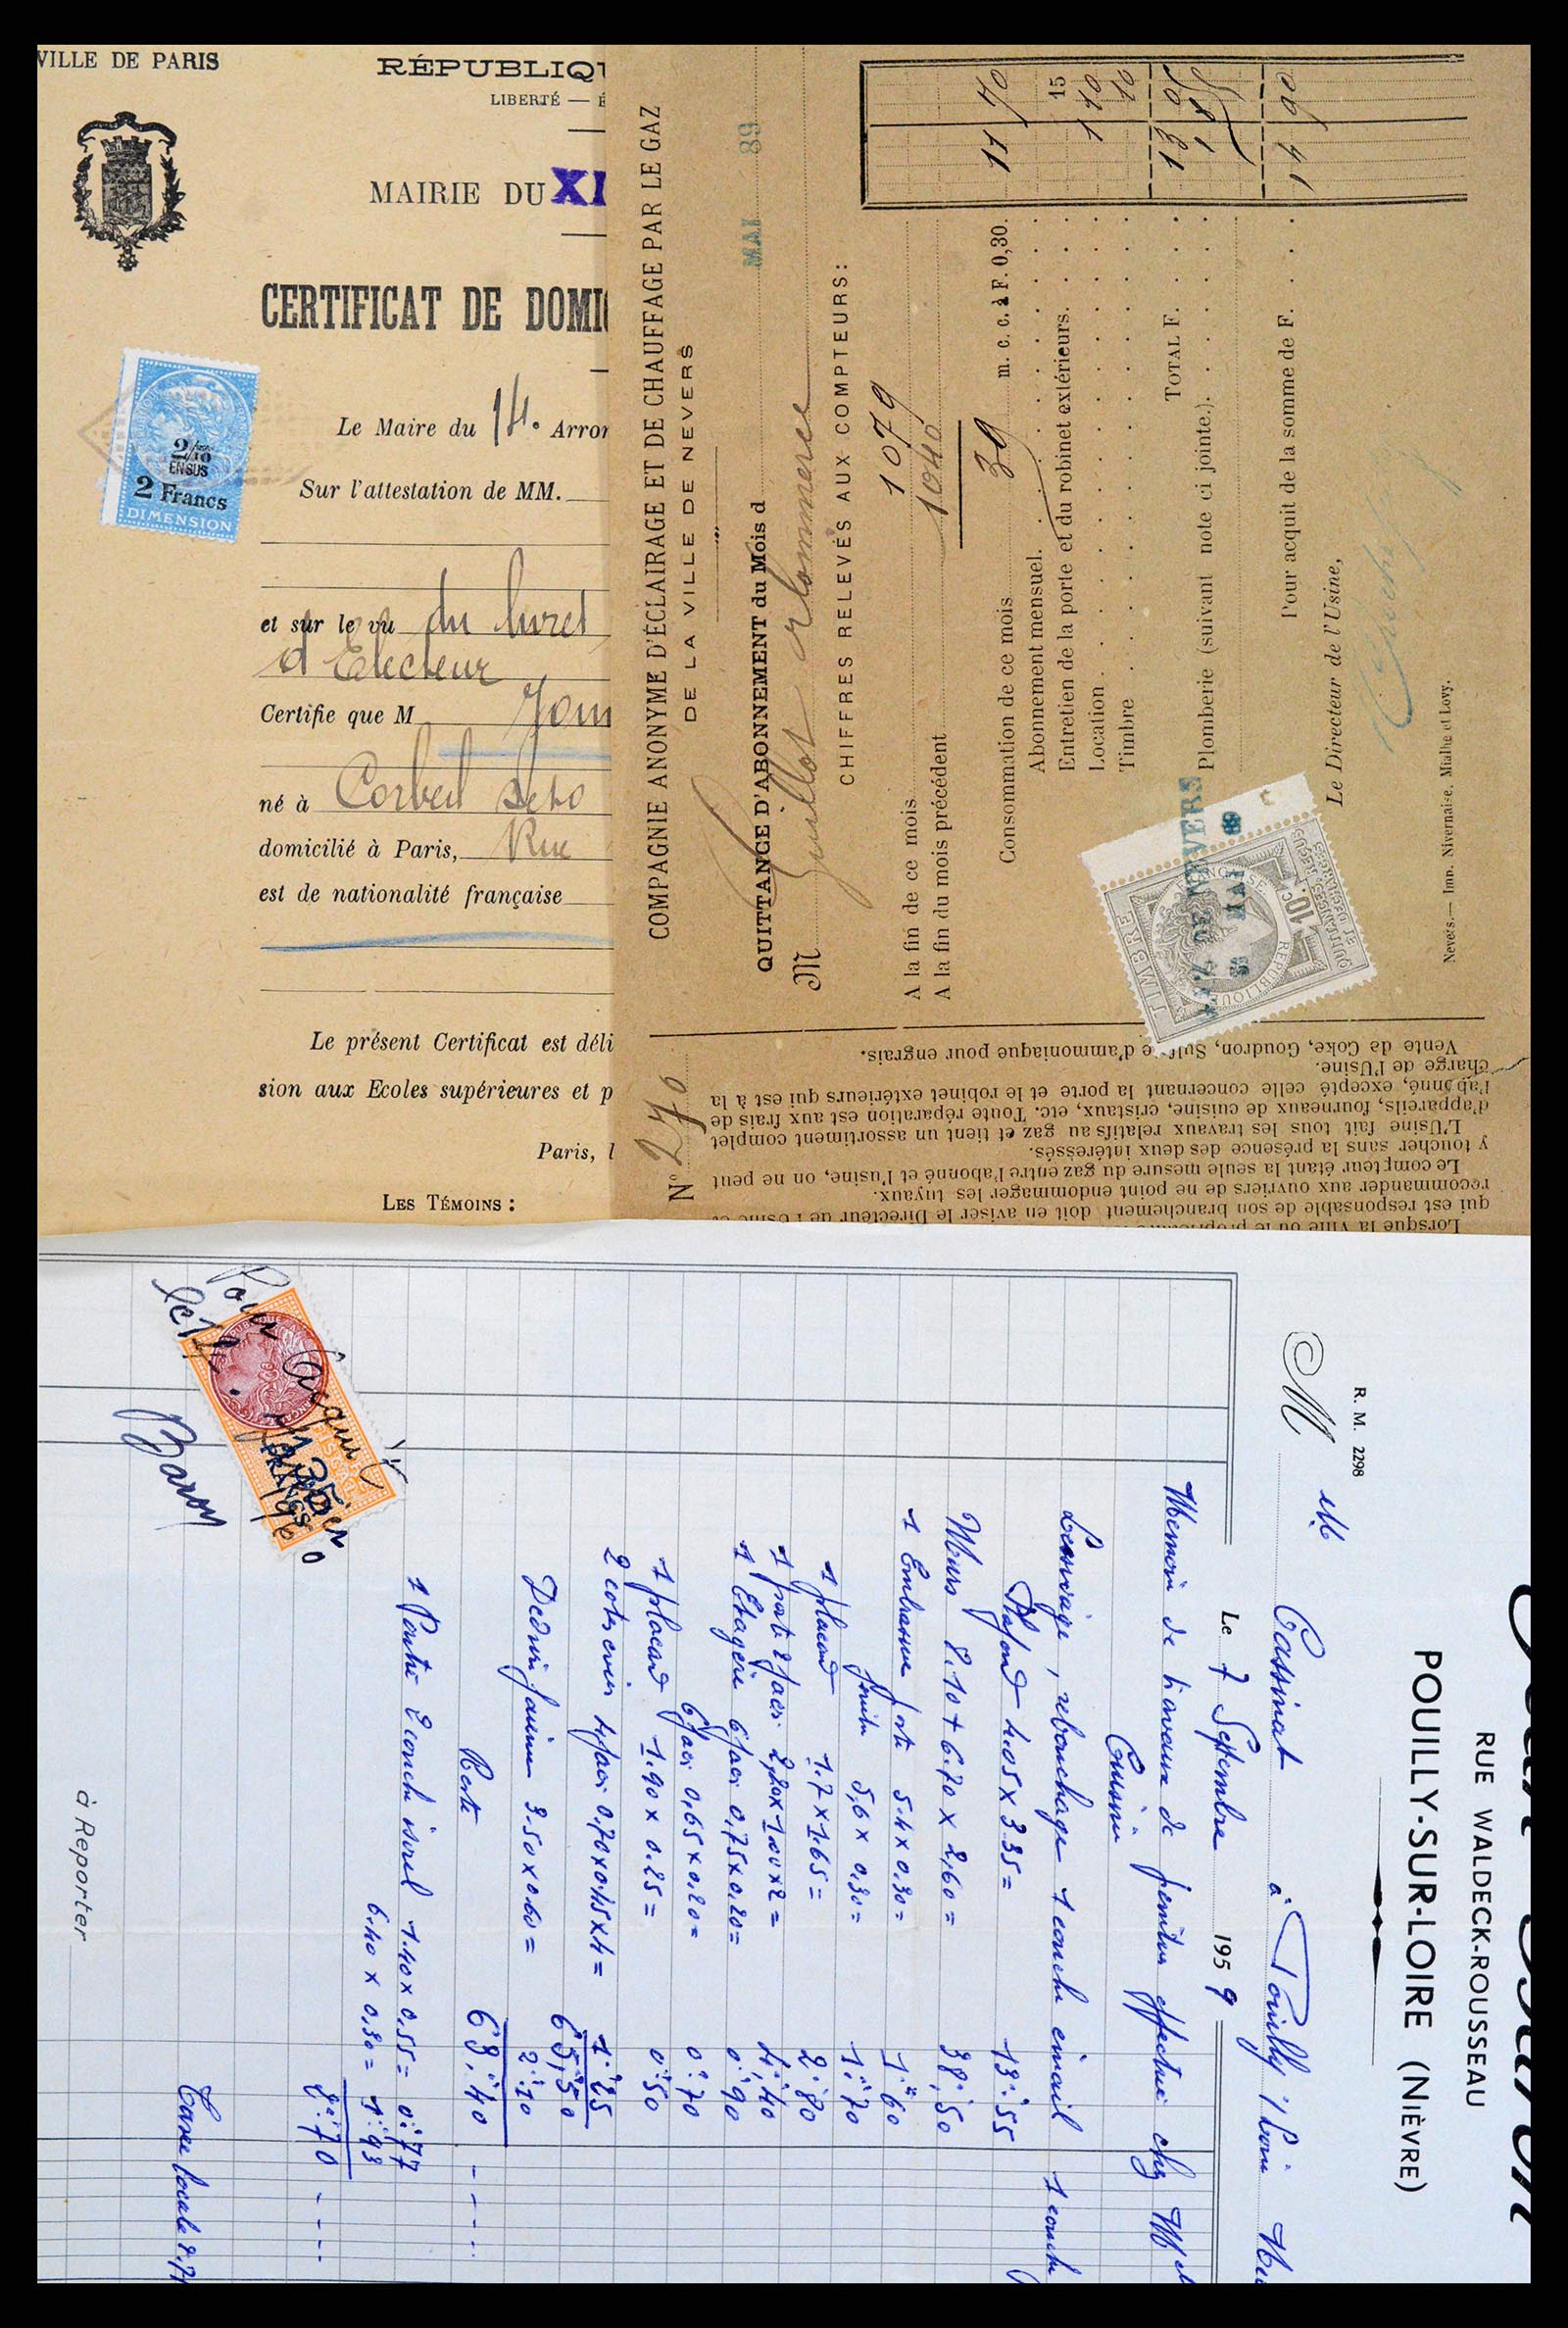 VILLE DE PARIS
RÉPUBLIQU
LIBERTÉ — É
MAIRIE DU XI
CERTIFICAT DE DOMI
2/10
EN SUS
2 Francs
DIMENSION
Le Maire du 14e Arron
Sur l'attestation de MM.
et sur le vu du livret
d'Electeur
Certifie que M
né à Corbeil
domicilié à Paris, Rue
est de nationalité française
Le présent Certificat est déli
sion aux Ecoles supérieures et p
Paris, l
LES TÉMOINS :
COMPAGNIE ANONYME D'ÉCLAIRAGE ET DE CHAUFFAGE PAR LE GAZ
DE LA VILLE DE NEVERS
QUITTANCE D'ABONNEMENT du Mois d MAI 89
M Guillot
CHIFFRES RELEVÉS AUX COMPTEURS:
A la fin de ce mois 1079
A la fin du mois précédent 1040
Consommation de ce mois 39 m. c. à F. 0,30. 11 70
Abonnement mensuel.
Entretien de la porte et du robinet extérieurs. 15
Location 1 10
Timbre 10
TOTAL F. 13 05
Plomberie (suivant note ci jointe.) 1 85
Pour acquit de la somme de F. 14 90
Le Directeur de l'Usine,
Nevers.— Imp. Nivernaise, Mialhe et Lovy.
TIMBRE
RÉPUBLIQUE FRANÇAISE
10c.
QUITTANCES REÇUS
ET DÉCHARGES
GAZ DE NEVERS
MAI 89
N° 270
Lorsque la Ville ou le propriétaire
qui est responsable de son branchement doit en aviser le Directeur de l'Usine et
recommander aux ouvriers de ne point endommager les tuyaux.
Le compteur étant la seule mesure du gaz entre l'abonné et l'usine, on ne peut
y toucher sans la présence des deux intéressés.
L'Usine fait tous les travaux relatifs au gaz et tient un assortiment complet
d'appareils, fourneaux de cuisine, cristaux, etc. Toute réparation est aux frais de
l'abonné, excepté celle concernant la porte et le robinet extérieurs qui est à la
charge de l'Usine.
Vente de Coke, Goudron, Sulfate d'ammoniaque pour engrais.
RUE WALDECK-ROUSSEAU
POUILLY-SUR-LOIRE (NIÈVRE)
R. M. 2298
M Cassinat à Pouilly s/ Loire
Le 7 Septembre 1959
Memoire de travaux de peinture effectué chez M
Cuisine
Lessivage, rebouchage 1 couche émail 1 couche
Plafond 4.05 x 3.35 = 13.55
Murs 8.10 + 6.70 x 2,60 = 38,50
1 Embrasure porte 5.4 x 0.30 = 1.60
fenêtre 5,6 x 0,30 = 1.70
1 placard 1.7 x 1.65 = 2.80
1 porte 2 faces 2,20 x 1.00 x 2 = 4,40
1 Etagère 6 faces 0,75 x 0,20 = 0.90
6 faces 0,65 x 0,20 = 0.70
1 placard 1.90 x 0.25 = 0.50
2 cotes evier 4 faces 0.70 x 0,45 x 4 = 1.25
65,50
Déduire faience 3.50 x 0.60 = 2.10
Reste 63.40
1 Poutre 2 couches 1.40 x 0.55 = 0.77
6.40 x 0,30 = 1.93
2.70
Taxe locale 2.7
à Reporter
Pour Acquit
FISCAL
FRANCS
Baron